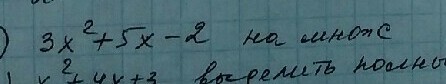 ) 3x²+5x-2 на множ
x²+4x+3 выделить полны